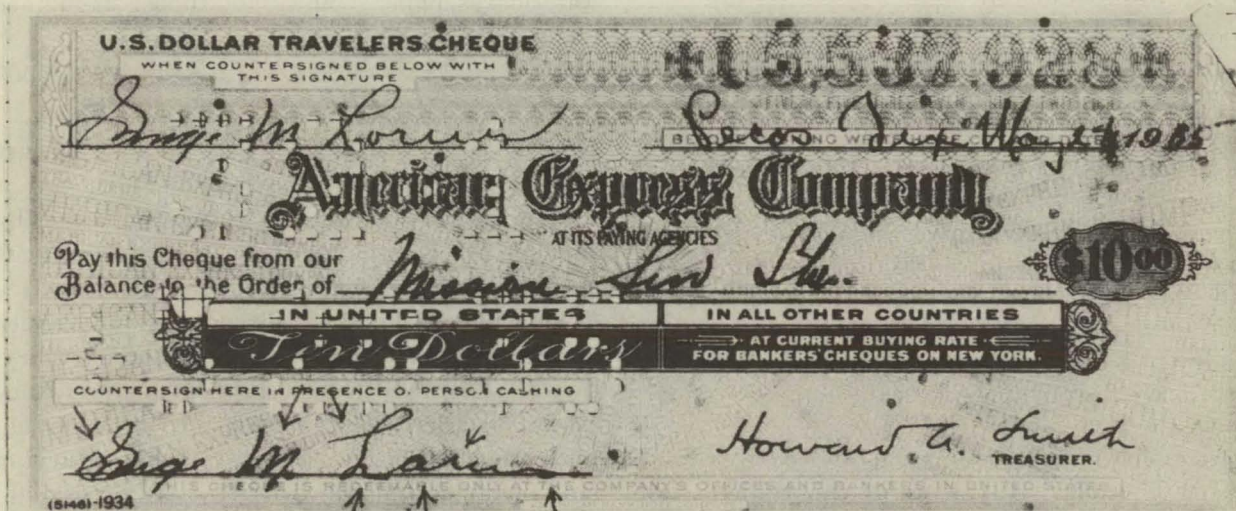 U.S. DOLLAR TRAVELERS CHEQUE
WHEN COUNTERSIGNED BELOW WITH
THIS SIGNATURE
M
Pecos Tex May 1935
American Express Company
AT ITS PAYING AGENCIES
Pay this Cheque from our
Balance to the Order of Mission
$10.00
IN UNITED STATES
IN ALL OTHER COUNTRIES
Ten Dollars
AT CURRENT BUYING RATE
FOR BANKERS' CHEQUES ON NEW YORK.
COUNTERSIGN HERE IN PRESENCE OF PERSON CASHING
M
Howard A. Smith
TREASURER.
THIS CHEQUE IS REDEEMABLE ONLY AT THE COMPANY'S OFFICES AND BANKERS IN UNITED STATES
1934